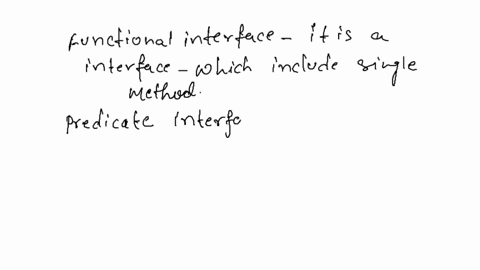 Functional interface - it is a
interface - which include single
method.
Predicate Interfa